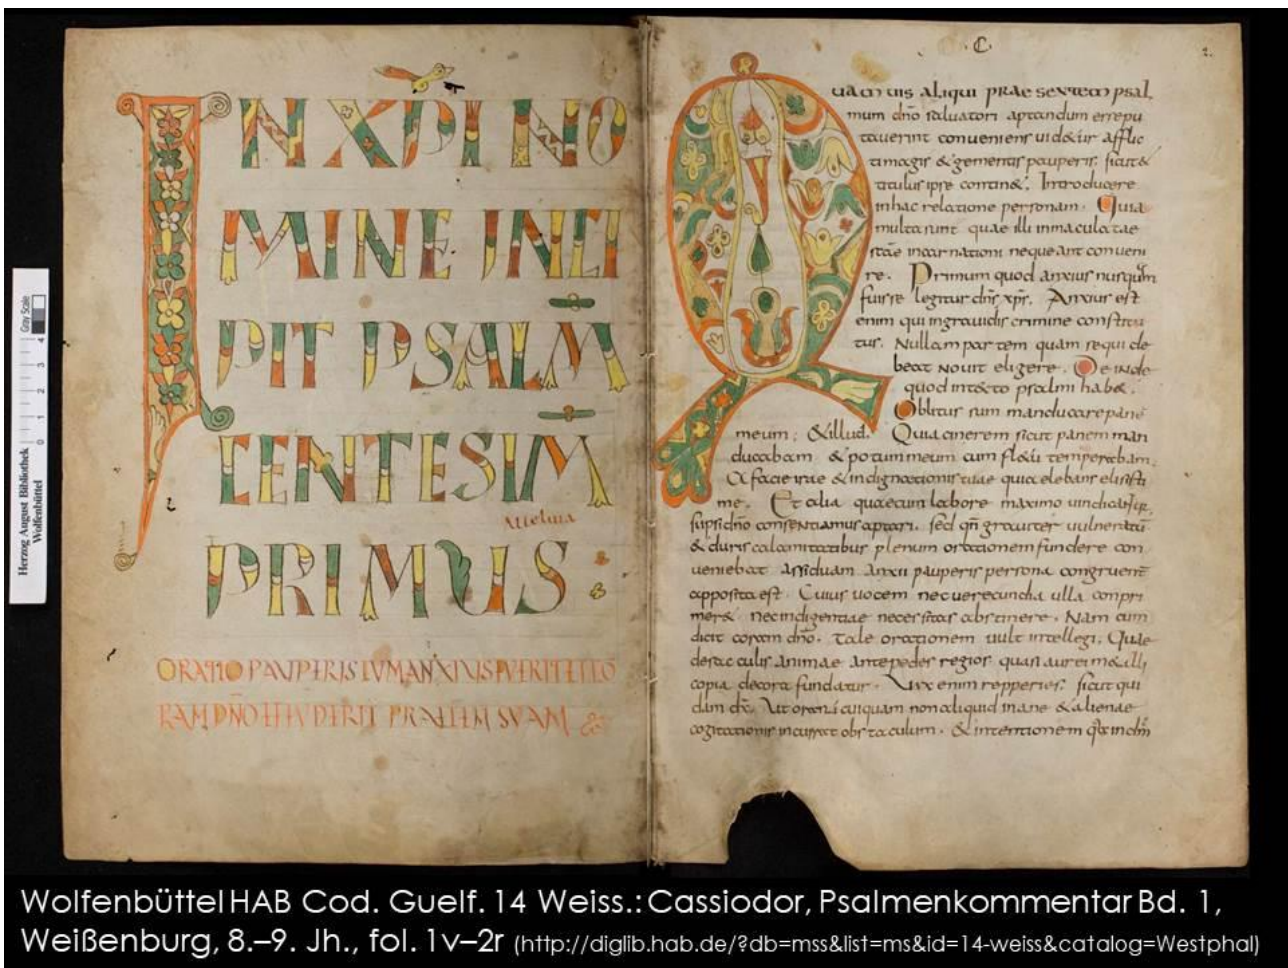 IN XPI NO
MINE INCI
PIT PSALM̄
CENTESIM̄
Alleluia
PRIMUS
ORATIO PAUPERIS CUM ANXIUS FUERIT ET CO
RAM DN̄O EFFUDERIT PRAECEM SUAM
C
2.
Quamuis aliqui prae sextum psal
mum dn̄o saluatori aptandum
conueniens uidetur afflic
to magis & gementi pauperi. sicut &
titulus ipse contin&. Introducere
in hac relatione personam. Quia
multa sunt quae illi inmaculatae
incarnationi nequeant conueni
re. Primum quod anxius nusquam
fuisse legitur dn̄s xp̄s. Anxius est
enim qui ingrauidis crimine
tus. Nullam partem quam sequi de
beat nouit eligere. Deinde
quod psalmi hab&.
Oblitus sum manducare pane
meum; &illud. Quia cinerem sicut panem man
ducabam & potum meum cum fletu temperabam.
A facie irae & indignationis tuae quia elebans elisisti
me. Et alia quaecum labore maximo
dn̄o consentiamus aptari. sed grauiter uulneratū
& duris calamitatibus plenum orationem fundere con
ueniebat assiduam anxii pauperis persona congruent
apposita est. Cuius uocem nec uerecundia ulla conpri
mer& nec indigentiae necessitas abstinere. Nam cum
dicit coram dn̄o. Tale orationem uult intellegi. Quae
de animae ante pedes regios quasi aurei metalli
copia decora fundatur. Uix enim repperies. sicut qui
dam Ut cuiquam non aliquid inane & alienae
cogitationis incurrat obstaculum. & intentionem
Herzog August Bibliothek
Wolfenbüttel
0 1 2 3 4
Gray Scale
Wolfenbüttel HAB Cod. Guelf. 14 Weiss.: Cassiodor, Psalmenkommentar Bd. 1,
Weißenburg, 8.–9. Jh., fol. 1v–2r (http://diglib.hab.de/?db=mss&list=ms&id=14-weiss&catalog=Westphal)